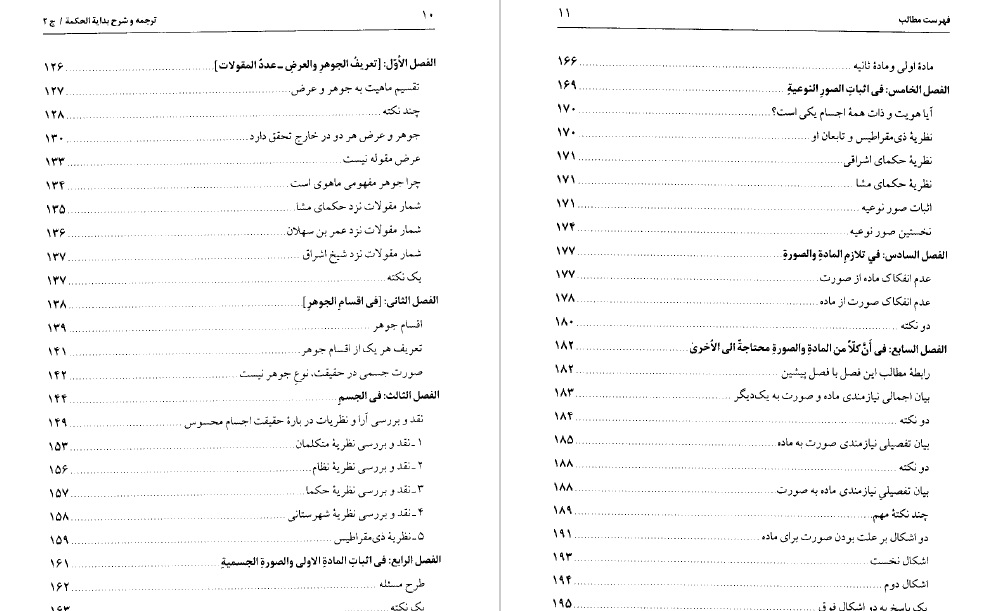 ۱۰ ترجمه و شرح بدایة الحکمة / ج ۲
الفصل الأوّل: [تعریفُ الجوهرِ والعرضِ ـ عددُ المقولات] ۱۲۶
تقسیم ماهیت به جوهر و عرض ۱۲۷
چند نکته ۱۲۸
جوهر و عرض هر دو در خارج تحقق دارد ۱۳۰
عرض مقوله نیست ۱۳۳
چرا جوهر مفهومی ماهوی است ۱۳۴
شمار مقولات نزد حکمای مشا ۱۳۵
شمار مقولات نزد عمر بن سهلان ۱۳۶
شمار مقولات نزد شیخ اشراق ۱۳۷
یک نکته ۱۳۷
الفصل الثانی: [فی اقسامِ الجوهرِ] ۱۳۸
اقسام جوهر ۱۳۹
تعریف هر یک از اقسام جوهر ۱۴۱
صورت جسمی در حقیقت، نوع جوهر نیست ۱۴۲
الفصل الثالث: فی الجسمِ ۱۴۴
نقد و بررسی آرا و نظریات در بارهٔ حقیقت اجسام محسوس ۱۴۹
۱ـ نقد و بررسی نظریهٔ متکلمان ۱۵۳
۲ـ نقد و بررسی نظریهٔ نظام ۱۵۶
۳ـ نقد و بررسی نظریهٔ حکما ۱۵۷
۴ـ نقد و بررسی نظریهٔ شهرستانی ۱۵۸
۵ـ نظریهٔ ذی‌مقراطیس ۱۵۹
الفصل الرابع: فی اثباتِ المادةِ الاولی والصورةِ الجسمیةِ ۱۶۱
طرح مسئله ۱۶۲
یک نکته ۱۶۳
فهرست مطالب ۱۱
مادهٔ اولی و مادهٔ ثانیه ۱۶۶
الفصل الخامس: فی اثباتِ الصورِ النوعیةِ ۱۶۹
آیا هویت و ذات همهٔ اجسام یکی است؟ ۱۷۰
نظریهٔ ذی‌مقراطیس و تابعان او ۱۷۰
نظریهٔ حکمای اشراقی ۱۷۱
نظریهٔ حکمای مشا ۱۷۱
اثبات صور نوعیه ۱۷۱
نخستین صور نوعیه ۱۷۴
الفصل السادس: في تلازمِ المادةِ والصورةِ ۱۷۷
عدم انفکاک ماده از صورت ۱۷۷
عدم انفکاک صورت از ماده ۱۷۸
دو نکته ۱۸۰
الفصل السابع: فی أنَّ کلّاً من المادةِ والصورةِ محتاجةٌ الی الاُخری ۱۸۲
رابطهٔ مطالب این فصل با فصل پیشین ۱۸۲
بیان اجمالی نیازمندی ماده و صورت به یک‌دیگر ۱۸۳
دو نکته ۱۸۴
بیان تفصیلی نیازمندی صورت به ماده ۱۸۵
دو نکته ۱۸۸
بیان تفصیلیِ نیازمندی ماده به صورت ۱۸۸
چند نکتهٔ مهم ۱۸۹
دو اشکال بر علت بودن صورت برای ماده ۱۹۱
اشکال نخست ۱۹۳
اشکال دوم ۱۹۴
یک پاسخ به دو اشکال فوق ۱۹۵